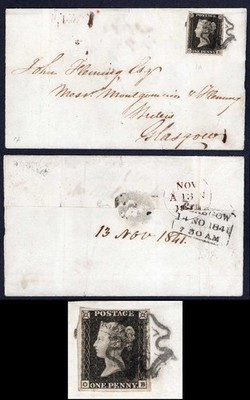 POSTAGE
ONE PENNY
John Fleming Esq
Messrs Montgomerie & Fleming
Writers
Glasgow
NOV
A 13
GLASGOW
14 NO 1841
7 30 AM
13 Nov 1841
POSTAGE
ONE PENNY